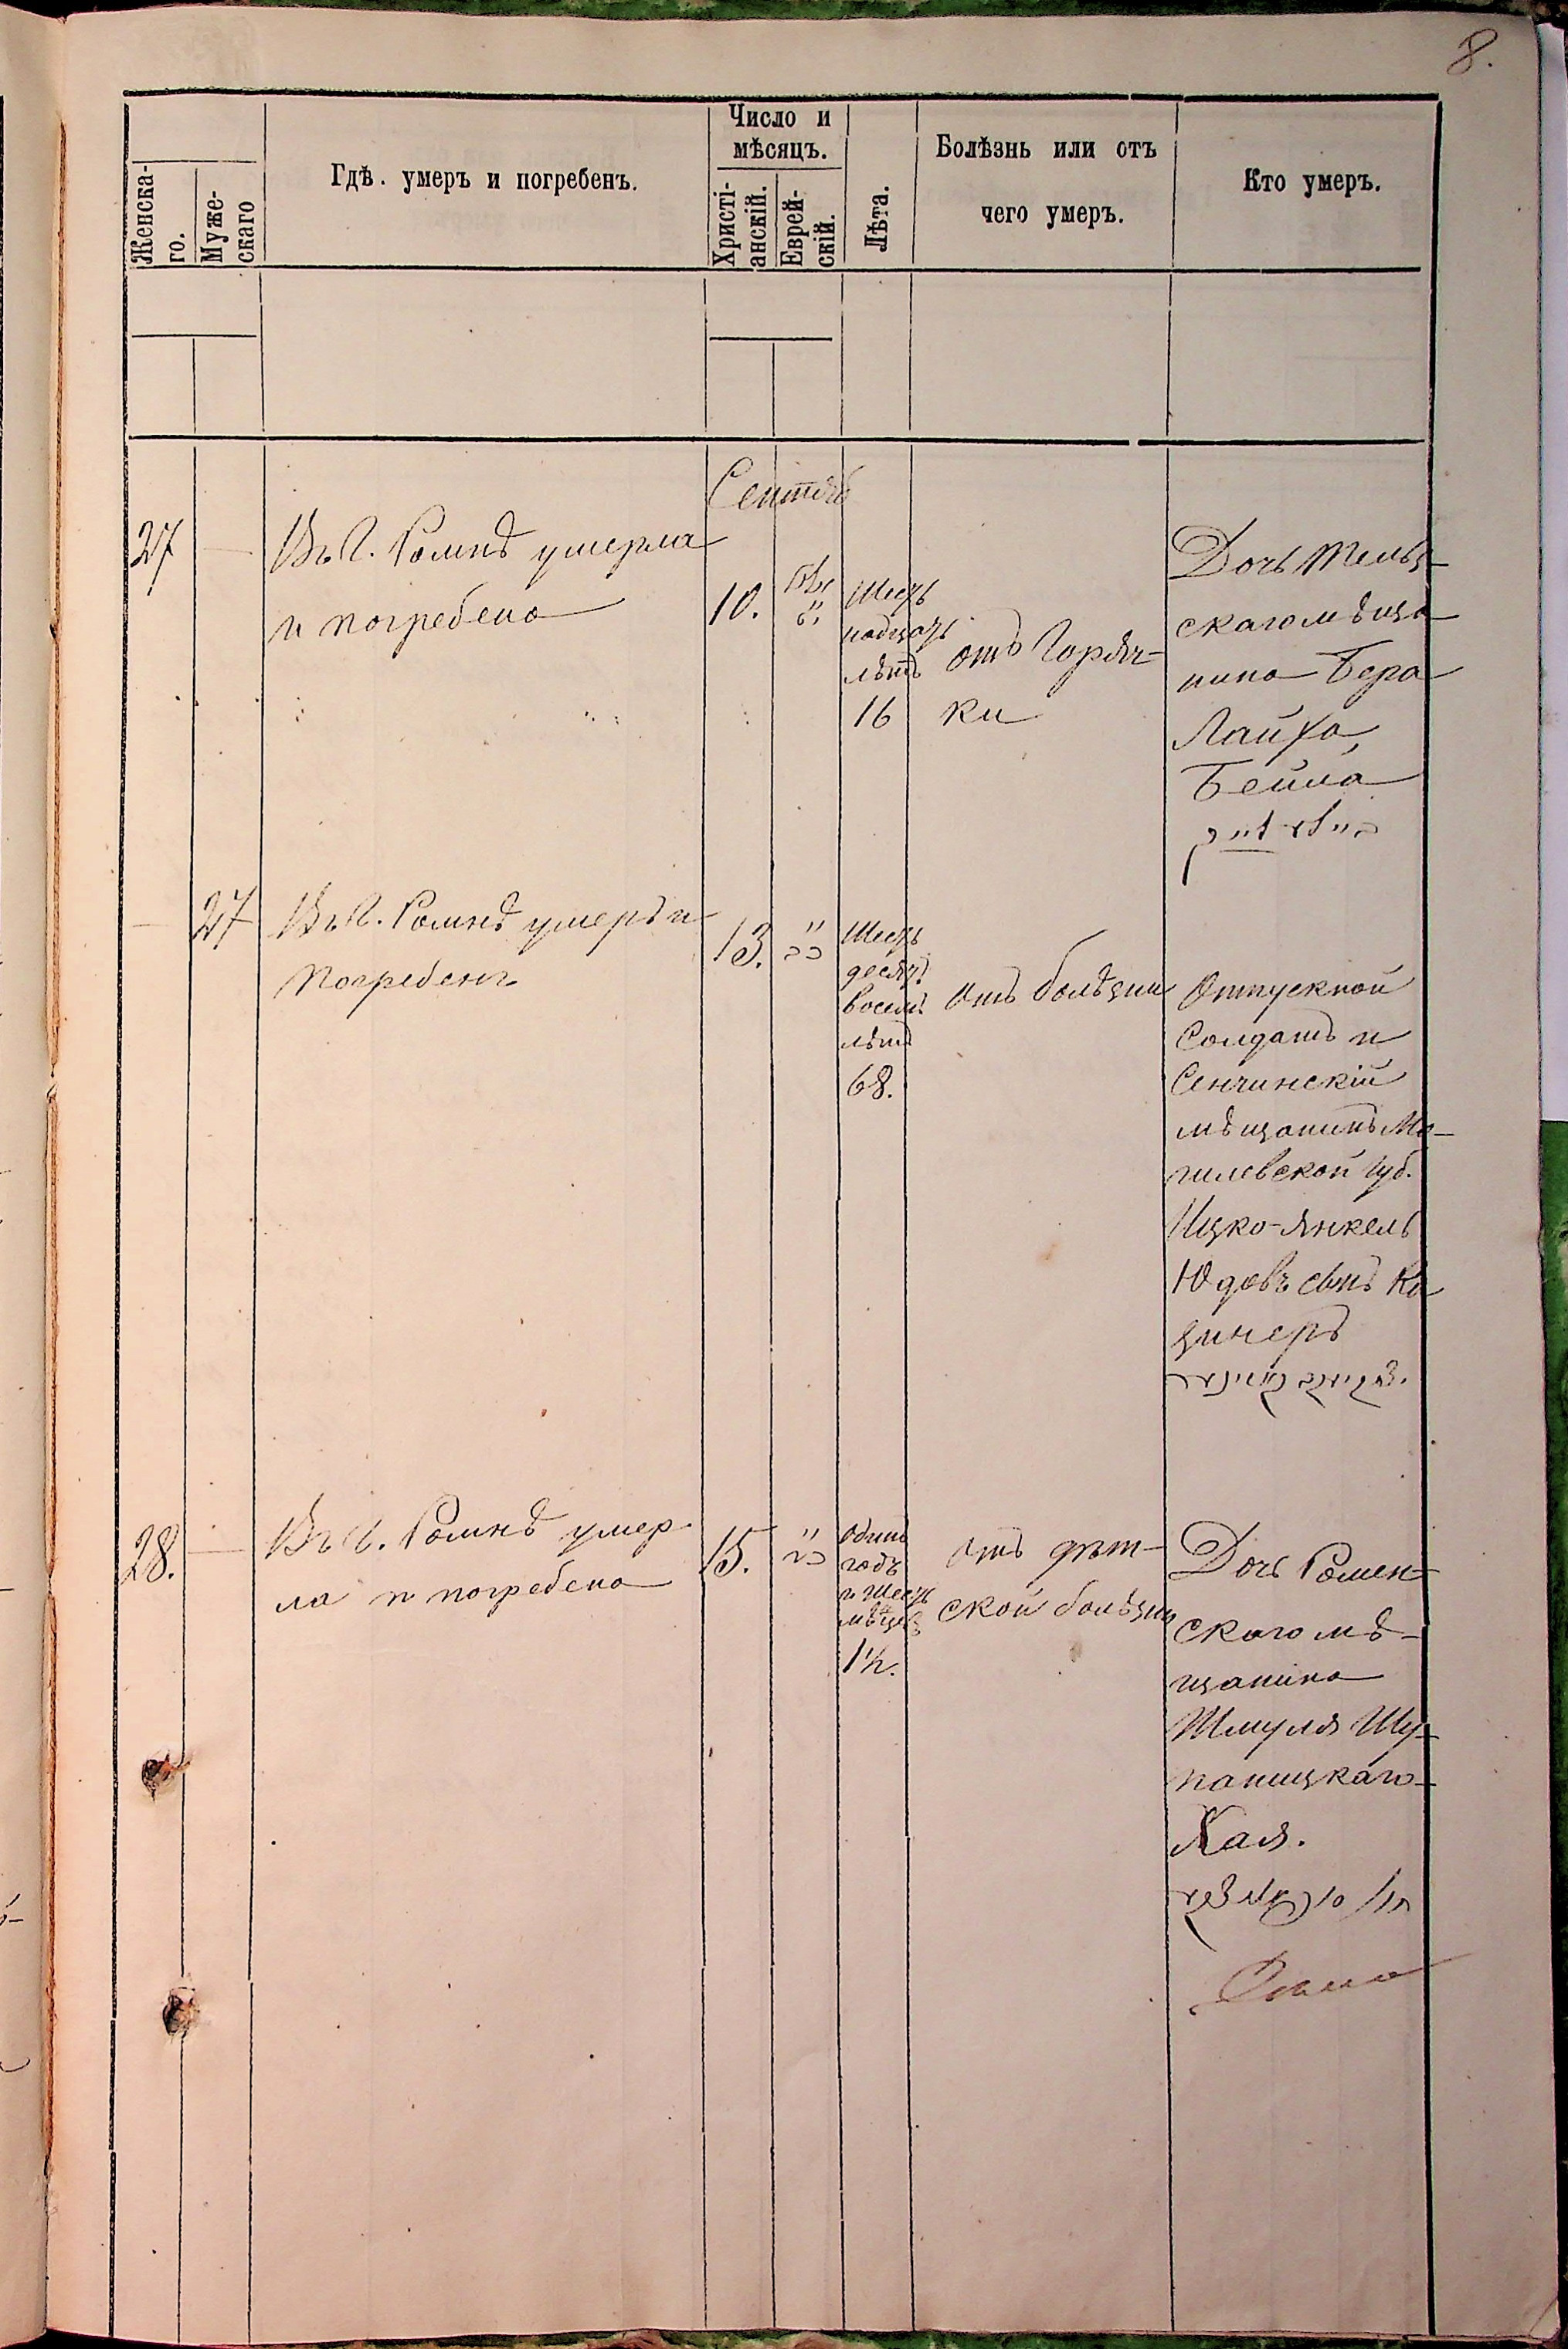 8.
Женска-
го.
Муже-
скаго
Гдѣ. умеръ и погребенъ.
Число и
мѣсяцъ.
Христі-
анскій.
Еврей-
скій.
Лѣта.
Болѣзнь или отъ
чего умеръ.
Кто умеръ.
Сентяб
27 — Въ Г. Ромнѣ умерла
и погребена
10.
Шест
надцать
лѣтъ
16
отъ Горяч-
ки
Дочь Тельз-
скаго мѣща-
нина Бера
Лайха,
Бейла
— 27 Въ Г. Ромнѣ умеръ и
погребенъ
13.
Шесть
десятъ
восемь
лѣтъ
68.
отъ болѣзни
Отпускной
Солдатъ и
Сенчинскій
мѣщанинъ Мо-
гилевской губ.
Ицко-Янкель
Юдовъ сынъ Ка
зинеръ
28. — Въ Г. Ромнѣ умер
ла и погребена
15.
Одинъ
годъ
и шесть
мѣсяцъ
1½.
отъ дѣт-
ской болѣзни
Дочь Ромен-
скаго мѣ-
щанина
Шмуля Шу-
паницкаго
Хая.